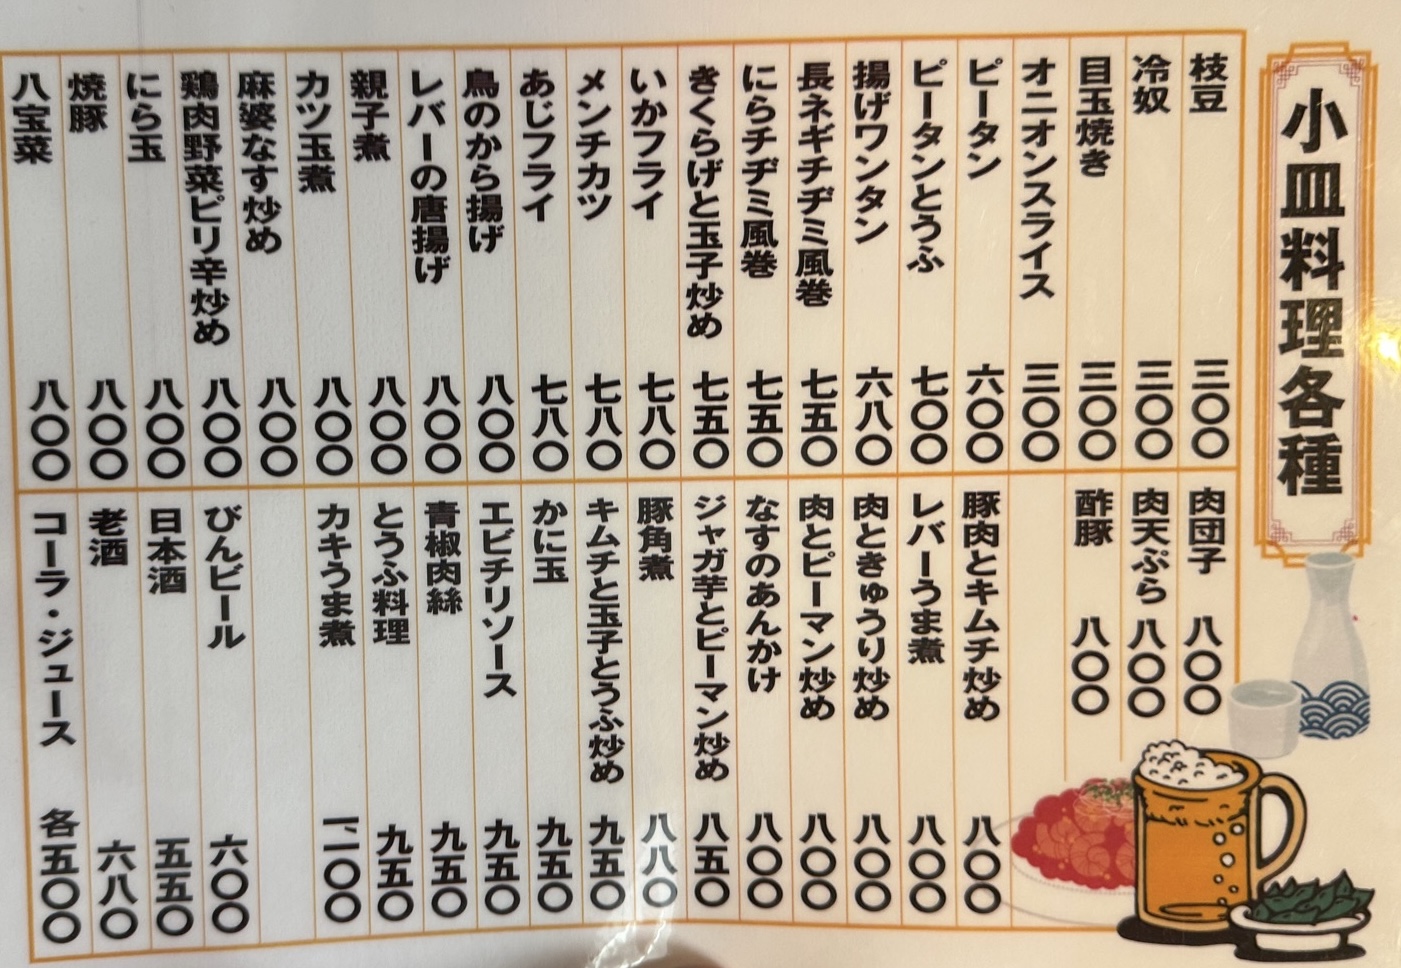 小皿料理各種
枝豆 三〇〇
冷奴 三〇〇
目玉焼き 三〇〇
オニオンスライス 三〇〇
ピータン 六〇〇
ピータンとうふ 七〇〇
揚げワンタン 六八〇
長ネギチヂミ風巻 七五〇
にらチヂミ風巻 七五〇
きくらげと玉子炒め 七五〇
いかフライ 七八〇
メンチカツ 七八〇
あじフライ 七八〇
鳥のから揚げ 八〇〇
レバーの唐揚げ 八〇〇
親子煮 八〇〇
カツ玉煮 八〇〇
麻婆なす炒め 八〇〇
鶏肉野菜ピリ辛炒め 八〇〇
にら玉 八〇〇
焼豚 八〇〇
八宝菜 八〇〇
肉団子 八〇〇
肉天ぷら 八〇〇
酢豚 八〇〇
豚肉とキムチ炒め 八〇〇
レバーうま煮 八〇〇
肉ときゅうり炒め 八〇〇
肉とピーマン炒め 八〇〇
なすのあんかけ 八〇〇
ジャガ芋とピーマン炒め 八五〇
豚角煮 八八〇
キムチと玉子とうふ炒め 九五〇
かに玉 九五〇
エビチリソース 九五〇
青椒肉絲 九五〇
とうふ料理 九五〇
カキうま煮
びんビール 六〇〇
日本酒 五五〇
老酒 六八〇
コーラ・ジュース 各五〇〇